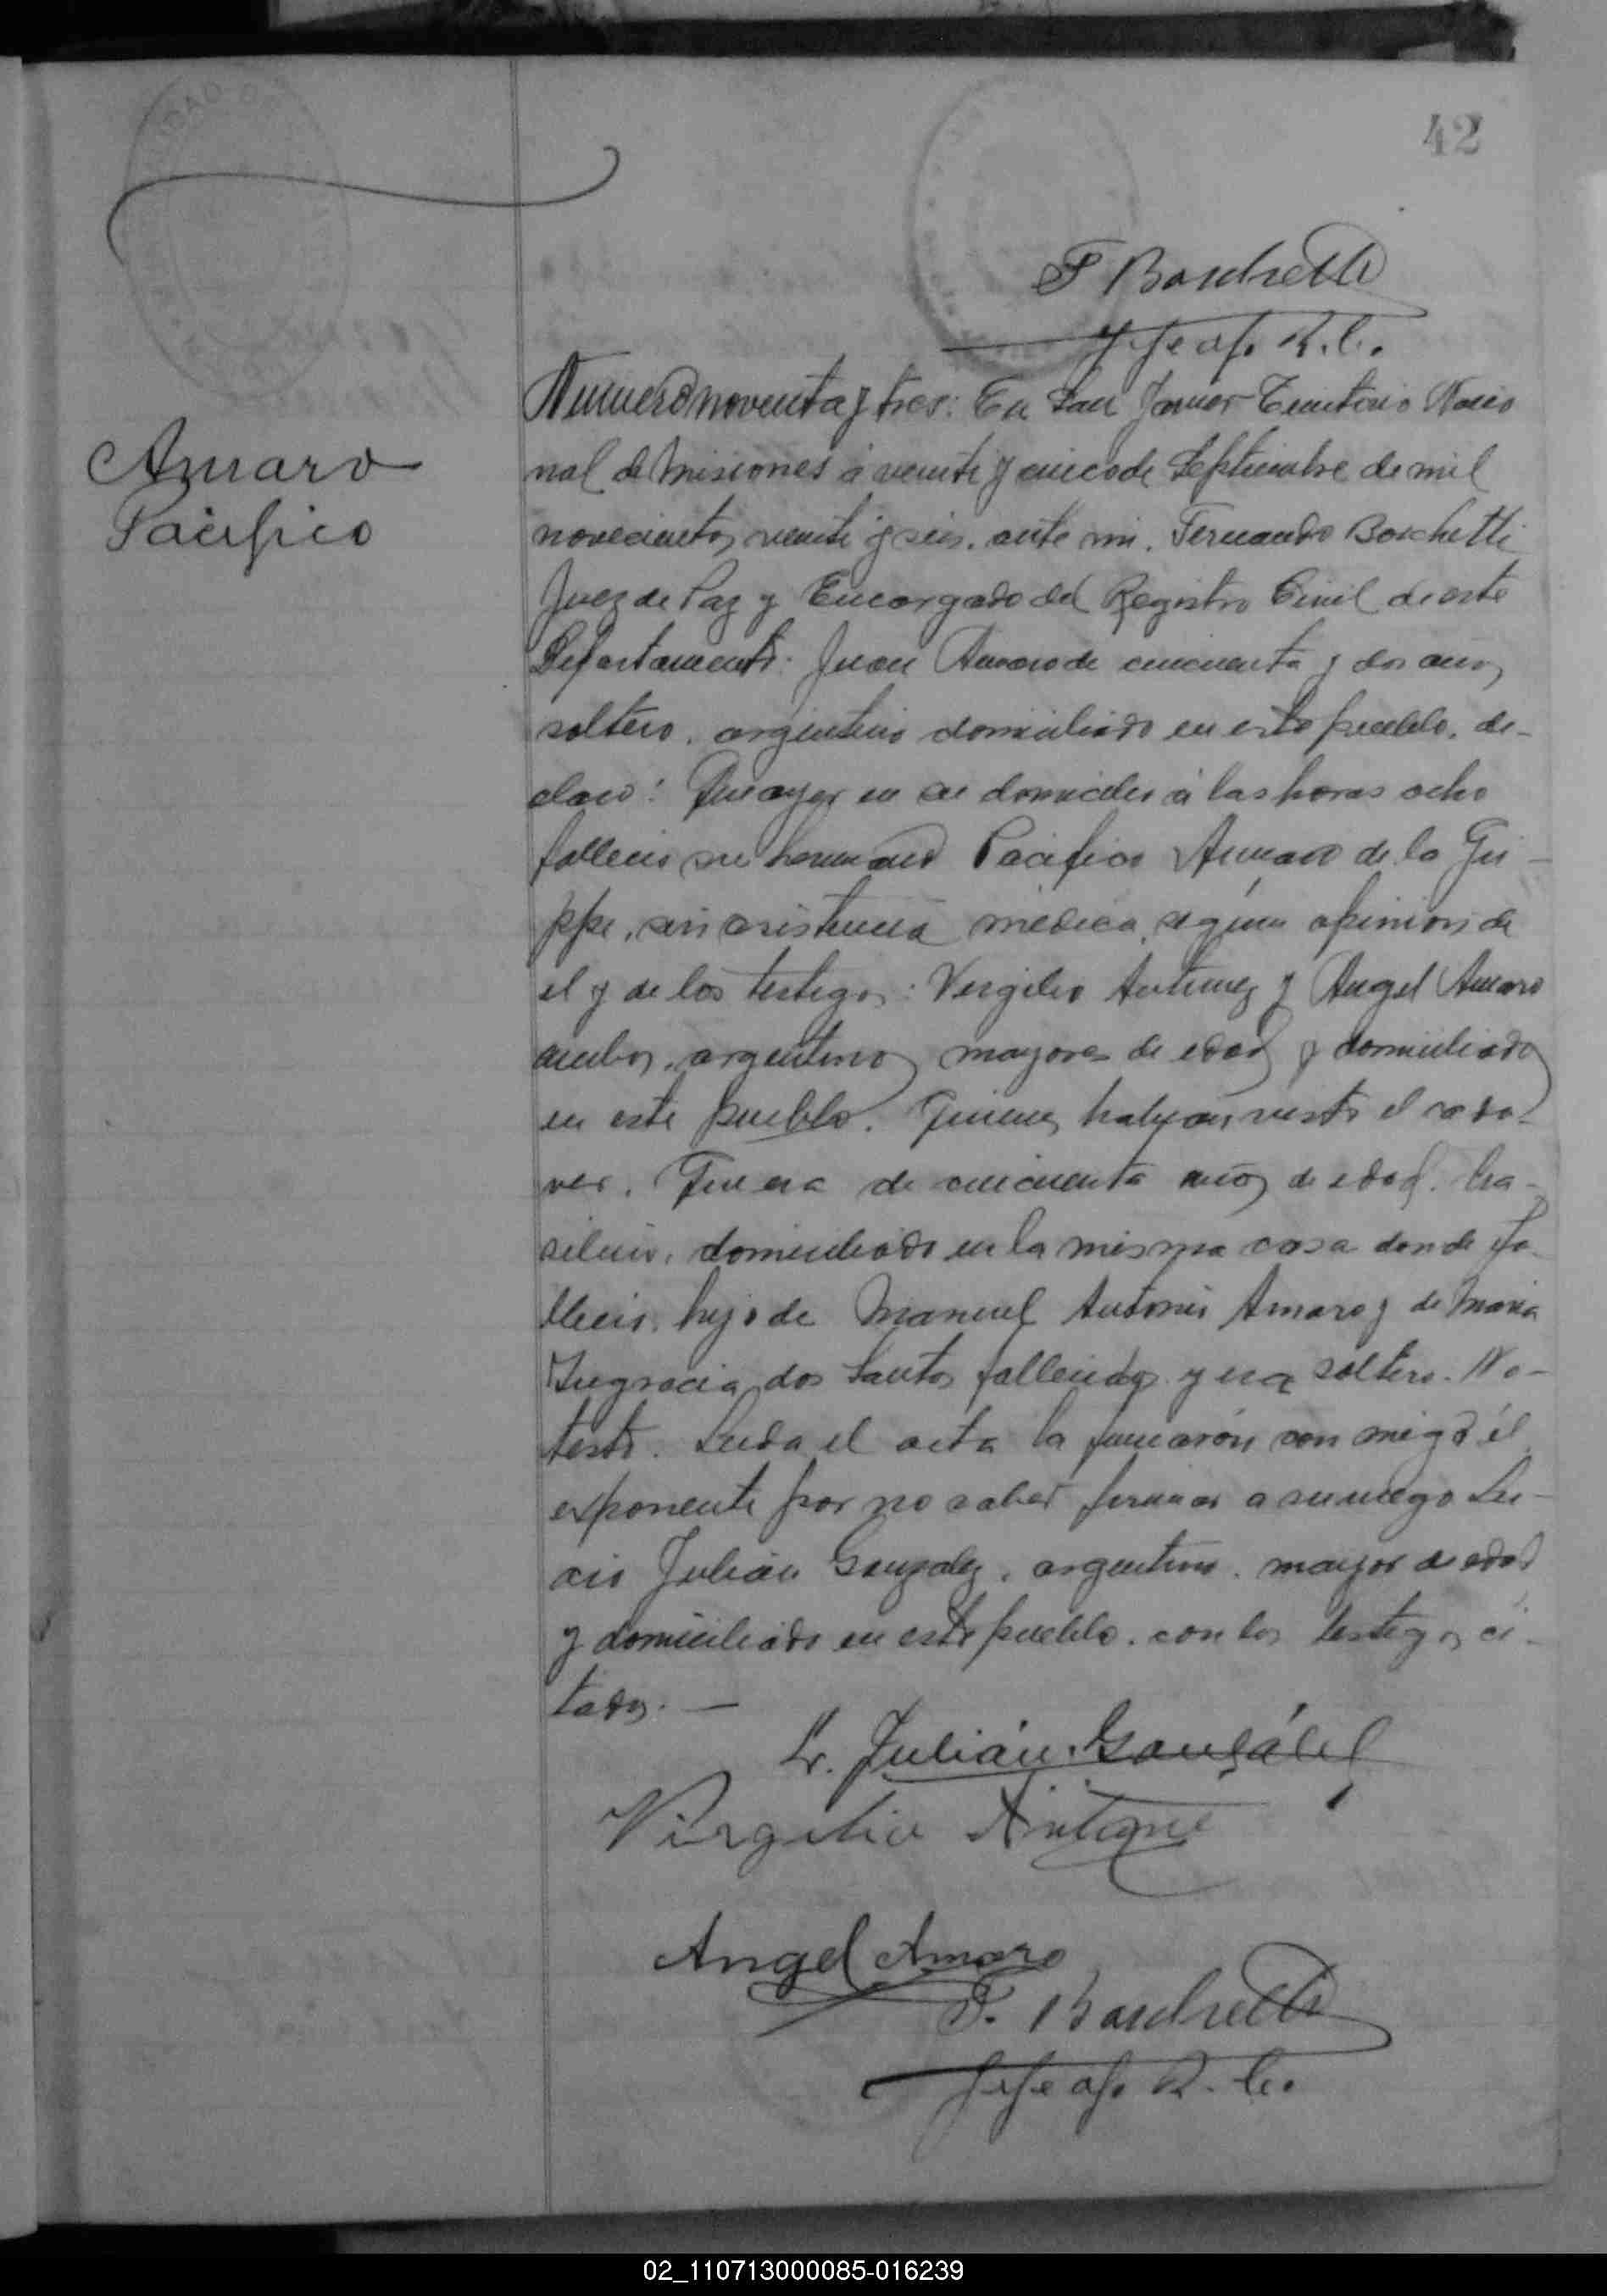 42
F Boschetti
Jefe of. R. C.
Amaro
Pacifico
Numero noventa y tres: En San Javier Territorio Nacio
nal de Misiones á veinte y cinco de Septiembre de mil
novecientos veinte y seis. ante mi. Fernando Boschetti
Juez de Paz y Encargado del Registro Civil de este
Departamento: Juan Amaro de cincuenta y dos años,
soltero. argentino domiciliado en este pueblo. de-
claró: Que ayer en su domicilio á las horas ocho
fallecio su hermano Pacifico Amaro de la Gri-
ppe, sin asistencia médica, según opinion de
el y de los testigos: Vergilio Antunez y Angel Amaro
ambos, argentinos mayores de edad y domiciliados
en este pueblo. Quienes habian visto el cada-
ver. Que era de cincuenta años de edad. bra-
silero, domiciliado en la misma casa donde fa-
llecio. hijo de Manuel Antonio Amaro y de Maria
Ingracia dos Santos fallecidos y era soltero. No-
testó. Leida el acta la firmarón con migo él
exponente por no saber firmar a su ruego Lu-
cio Julián Gonzalez, argentino. mayor de edad
y domiciliado en este pueblo. con los testigos ci-
tados. —
L. Julián González
Virgilio Antune
Angel Amaro
F. Boschetti
Jefe of. R. C.
02_110713000085-016239